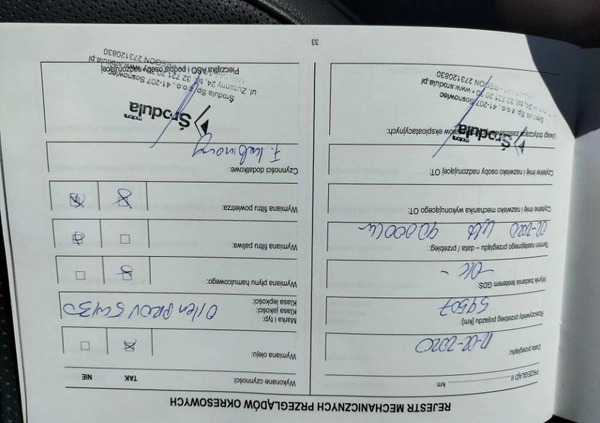 REJESTR MECHANICZNYCH PRZEGLĄDÓW OKRESOWYCH
PRZEGLĄD II km
Data przeglądu:
11-02-2020
Rzeczywisty przebieg pojazdu [km]
59507
Wynik badania testerem GDS:
- OK -
Termin następnego przeglądu – data / przebieg:
02-2020 lub 90000 km
Czytelne imię i nazwisko mechanika wykonującego OT:
Czytelne imię i nazwisko osoby nadzorującej OT:
Uwagi dotyczące eksploatacyjnych:
Środula
Środula Sp. z o.o. 41-207 Sosnowiec
REGON 273120830
33
Wykonane czynności: TAK NIE
Wymiana oleju:
Marka i typ:
Klasa jakości:
Klasa lepkości:
5W30
Wymiana płynu hamulcowego:
Wymiana filtru paliwa:
Wymiana filtru powietrza:
Czynności dodatkowe:
F. kabinowy
Środula
Środula Sp. z o.o. 41-207 Sosnowiec
ul. Zuzanny 24, tel. 32 721 20
REGON 273120830
Pieczątka ASO i podpis osoby nadzorującej